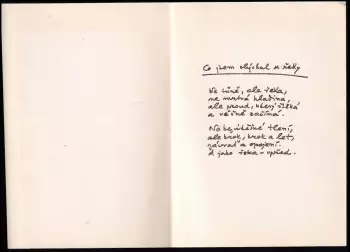 Co jsem slýchal u řeky
Ne tůně, ale řeka,
ne mrtvá hladina,
ale proud, který říká
a věčně začíná.
No bezútěšné tlení,
ale krok, krok a let,
závrať a opojení.
A jako řeka – vpřed.